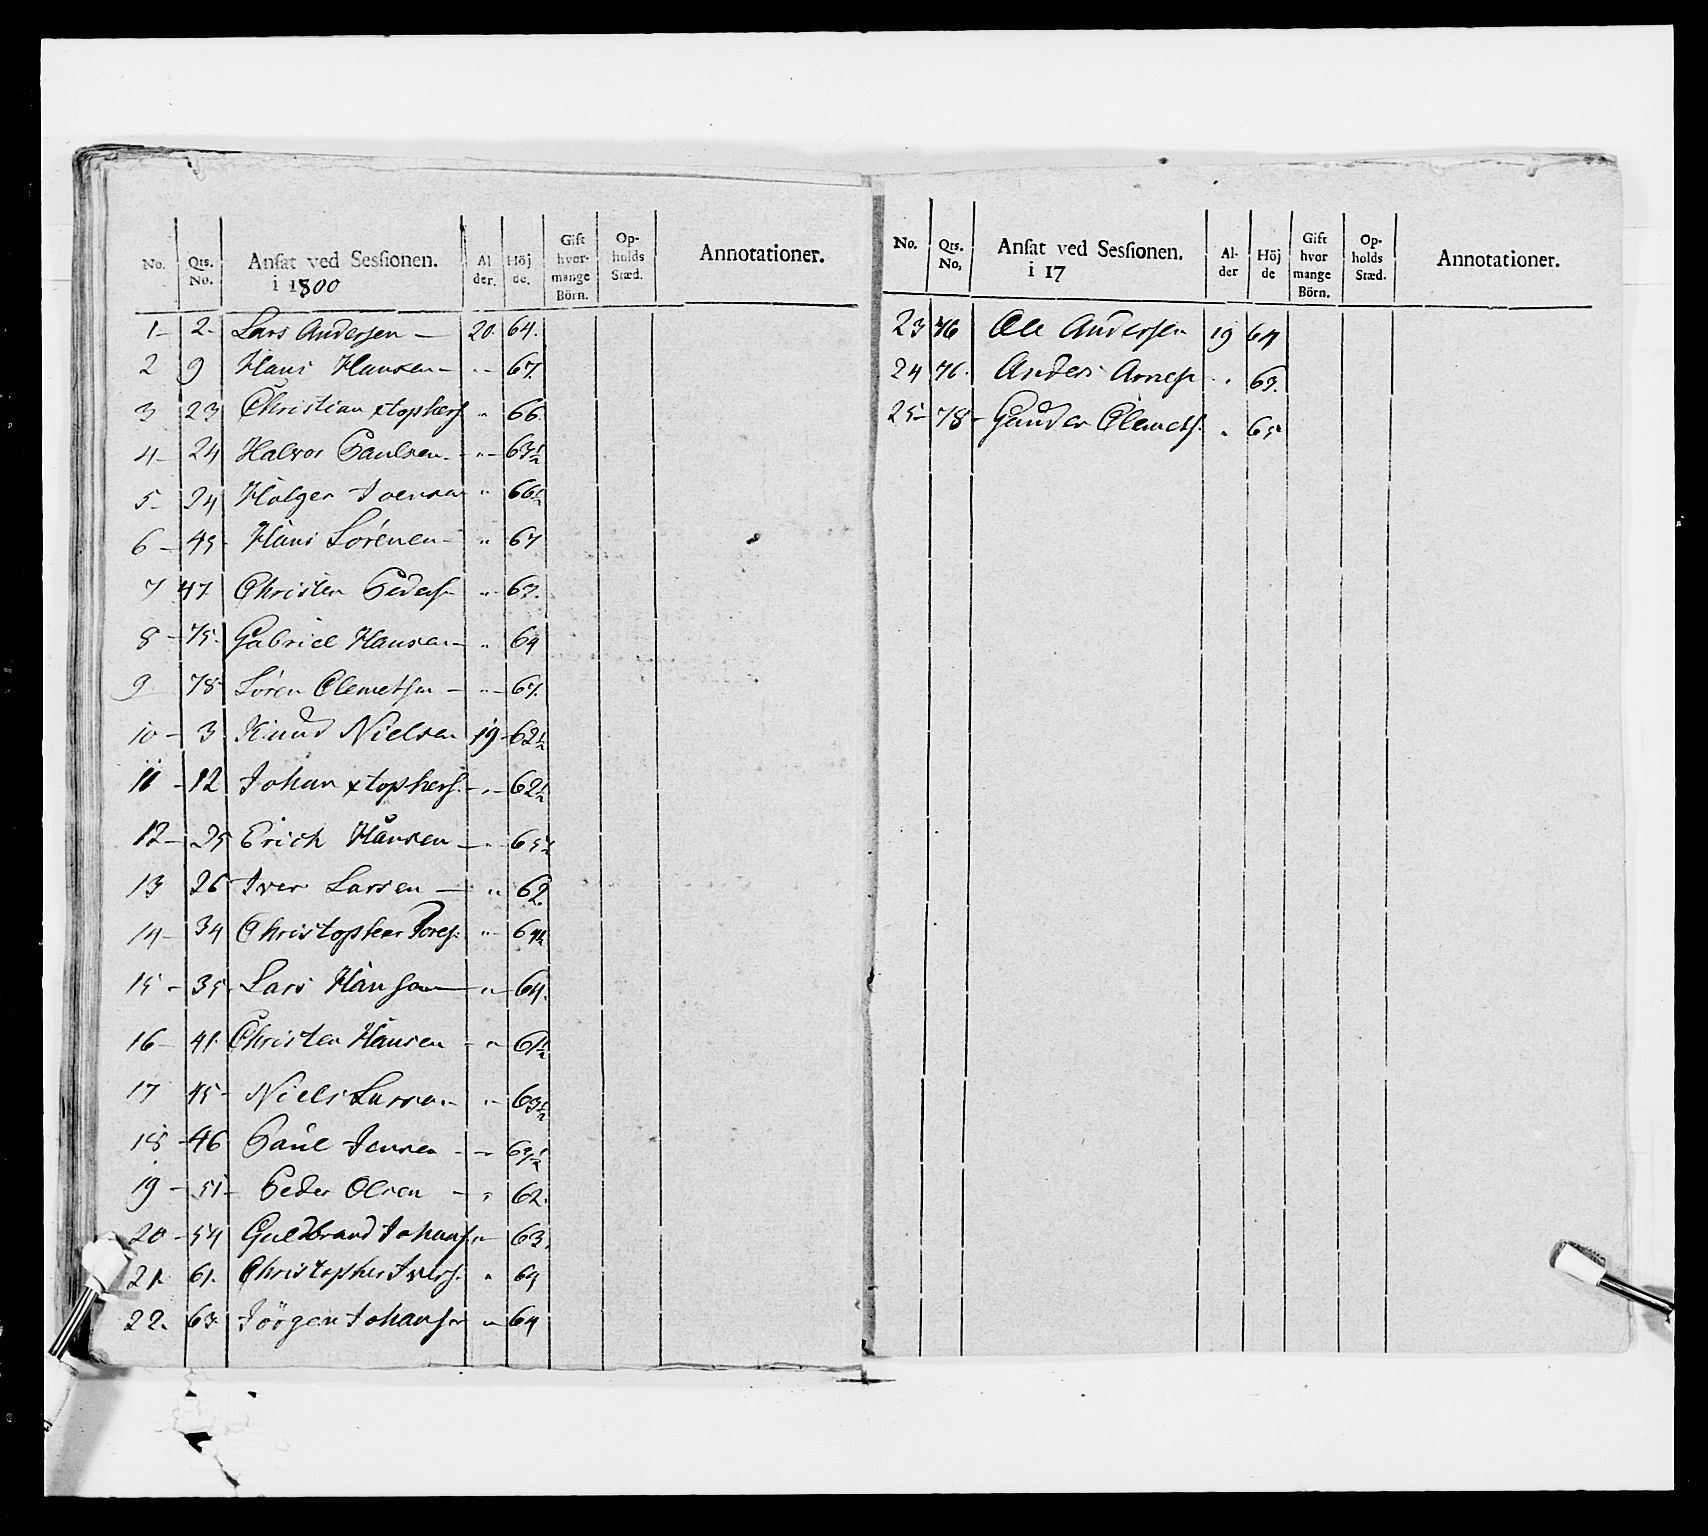 No. Qts. No. Ansat ved Sessionen. i 1800 Al der. Höj de. Gift hvor- mange Börn. Op- holds Stæd. Annotationer.
1 - 2 - Lars Andersen - 20. 64.
2 9 Hans Hansen - " - 67.
3 23 Christian xtophers " 66.
4 - 24 Halvor Paulsen - " - 63½
5 - 24 Holger Iversen " 66½
6 - 45 - Hans Sörensen - " 67
7 47 Christen Peders - " - 67.
8 - 75. Gabriel Hansen - " 64
9 - 78 - Sören Clemetsen - " - 67.
10 - 3. Knud Nielsen 19 - 62½
11 - 12 Johan xtophers. - " - 62½
12 - 25 Erich Hansen - " - 65½
13 26 - Iver Larsen - " 62.
14 - 34 Christopher Tores. " - 64½
15 - 35 - Lars Hansen - " - 64.
16 - 41. Christen Hansen - " - 61½
17 45 - Niels Larsen - " - 63½
18 - 46 Paul Jensen - " -
19 - 51 - Peder Olsen - " 62.
20 - 54 Guldbrand Johans. " - 63.
21. 61. Christopher Ivers. " 64
22. 63. Jörgen Johansen " - 64
No. Qts. No, Ansat ved Sessionen. i 17 Al- der Höj de Gift hvor mange Börn. Op- holds Stæd. Annotationer.
23 76 Ole Andersen 19 64
24 76. Anders Arnes - " 63.
25 - 78 - Gunder Clemets. " 65